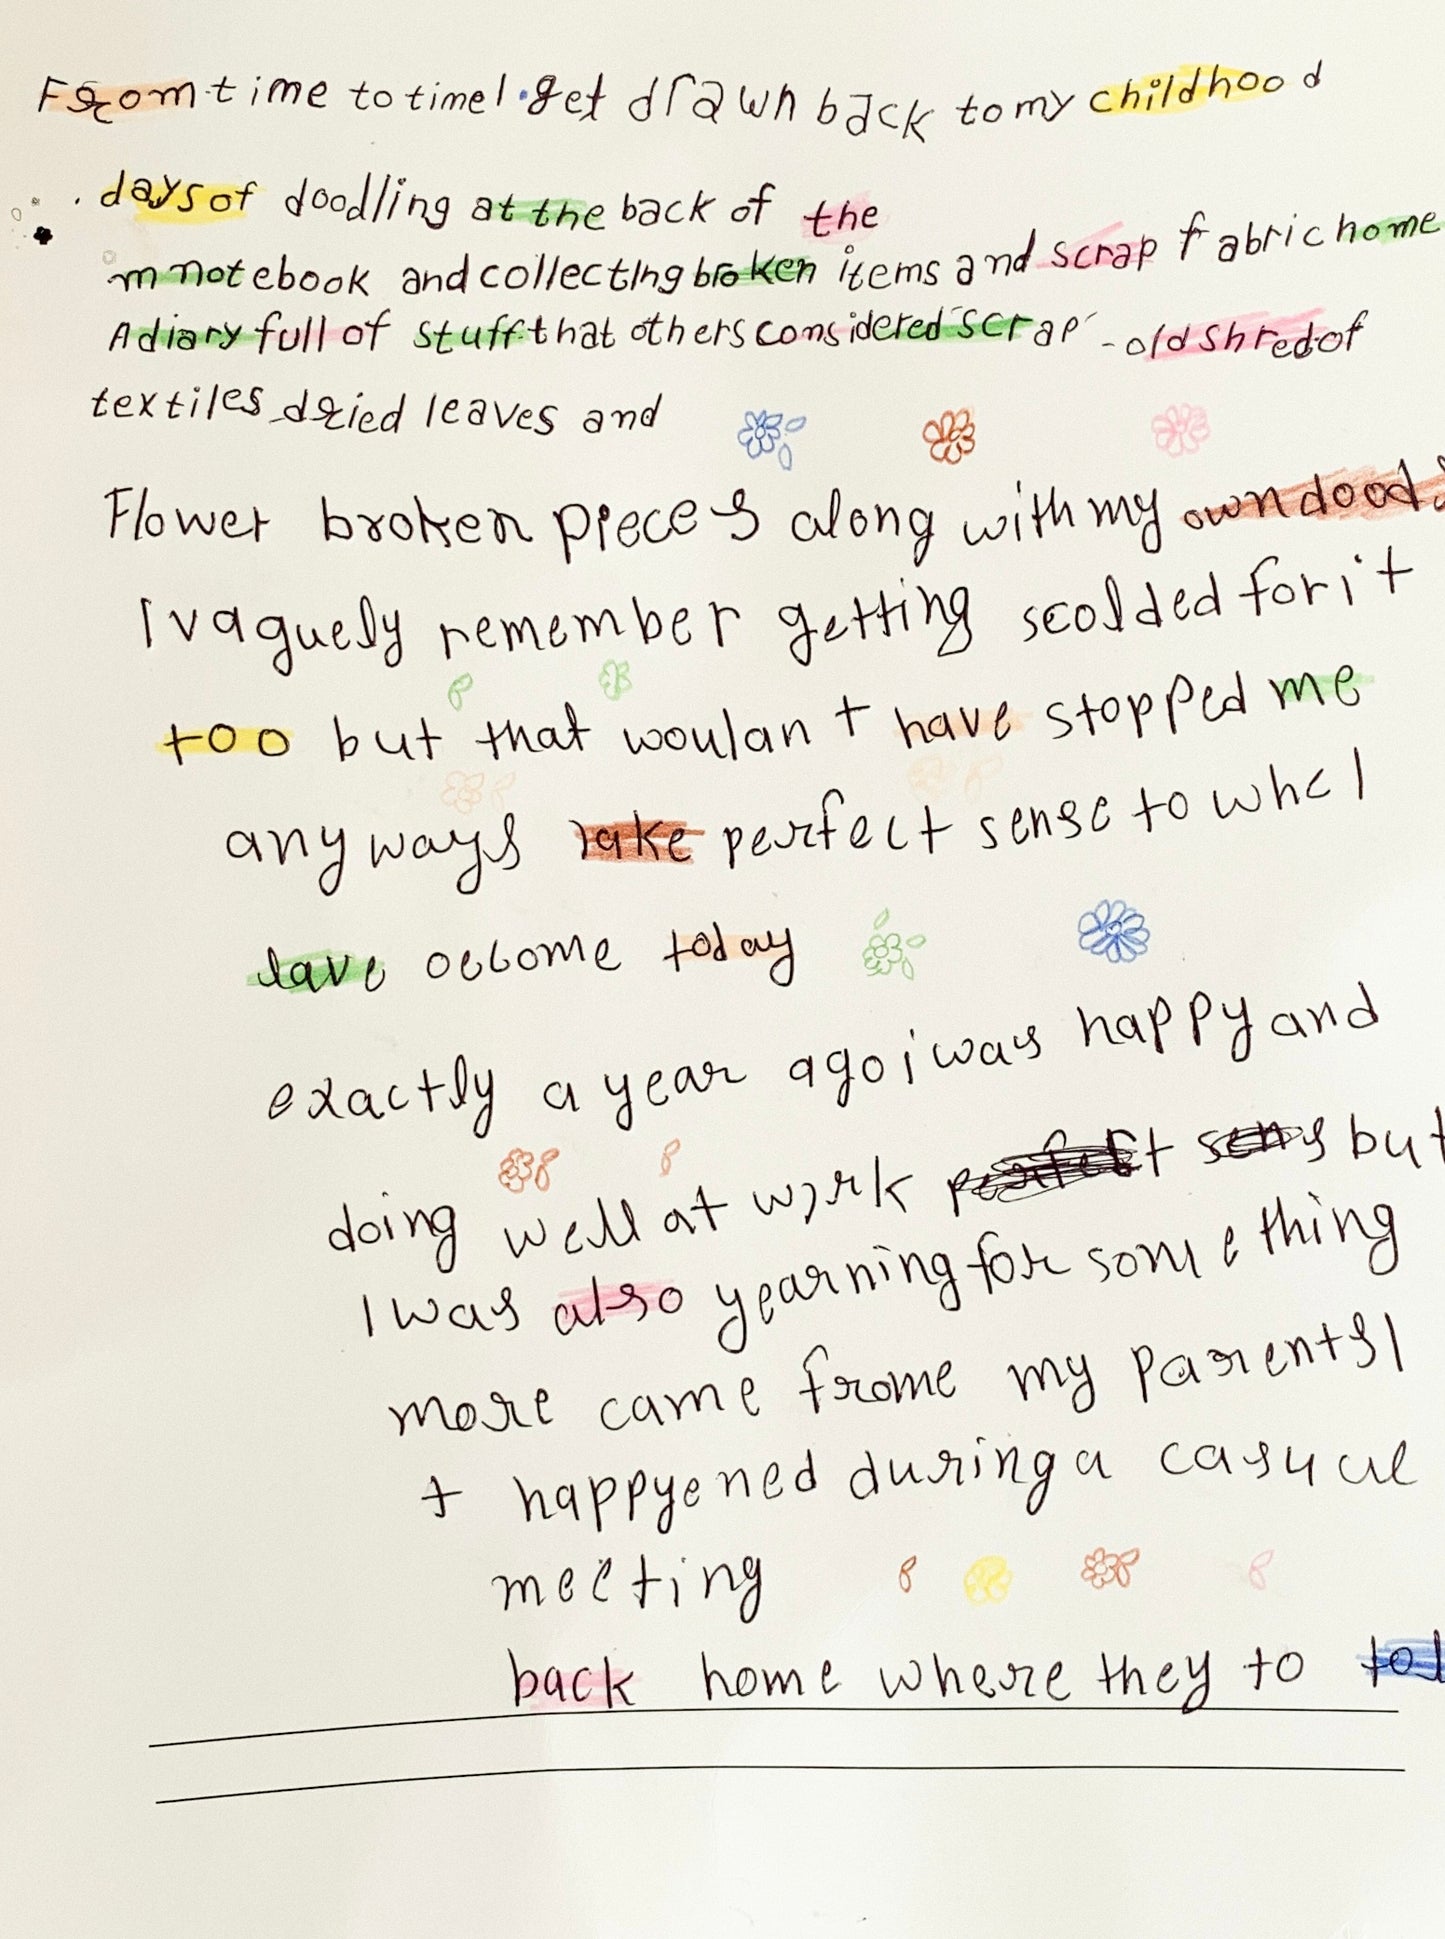 From time to time I get drawn back to my childhood
days of doodling at the back of the
m notebook and collecting broken items and scrap fabric home
A diary full of stuff that others considered 'scrap' - old shred of
textiles dried leaves and
Flower broken pieces along with my own
I vaguely remember getting scolded for it
too but that woulan t have stopped me
any ways perfect sense to whc I
lave become today
exactly a year ago i was happy and
doing well at work perfect sens but
I was also yearning for some thing
more came frome my parents I
t happyened during a casual
meeting
back home where they to tol